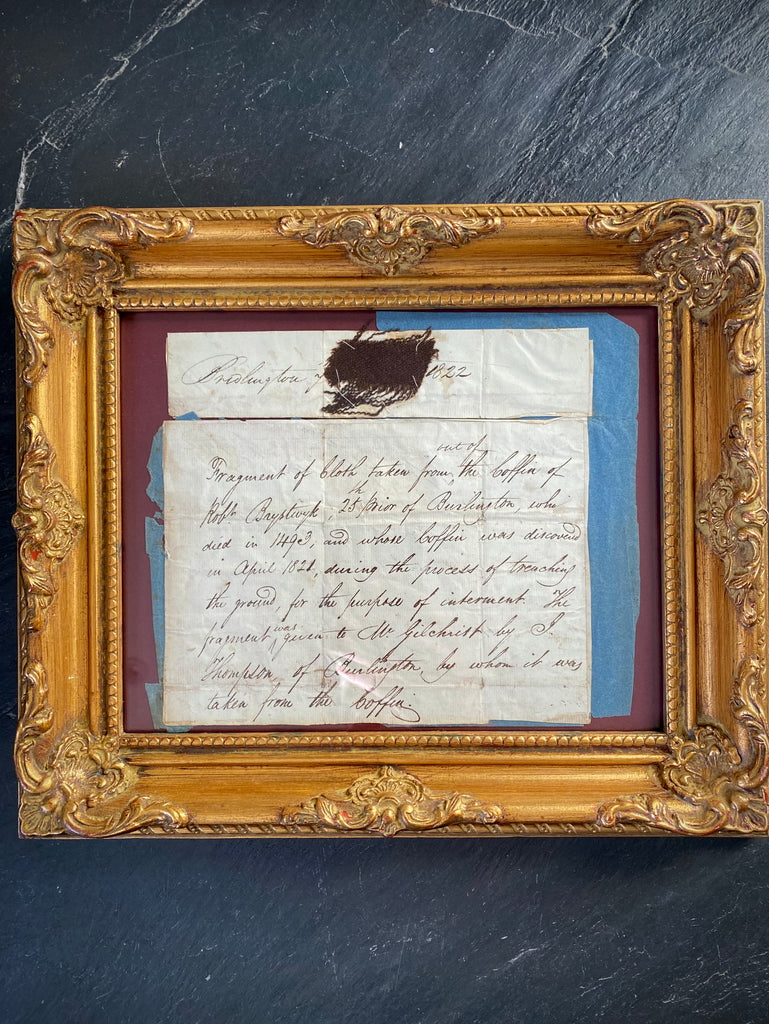 Bridlington 1822
out of
Fragment of Cloth taken from ‸ the Coffin of
Robt. Brystwyk, 25th Prior of Burlington, who
died in 1493, and whose Coffin was discovered
in April 1821, during the process of trenching
the ground, for the purpose of interment. The
was
fragment ‸ given to Mr Gilchrist by J.
Thompson, of Burlington, by whom it was
taken from the Coffin.